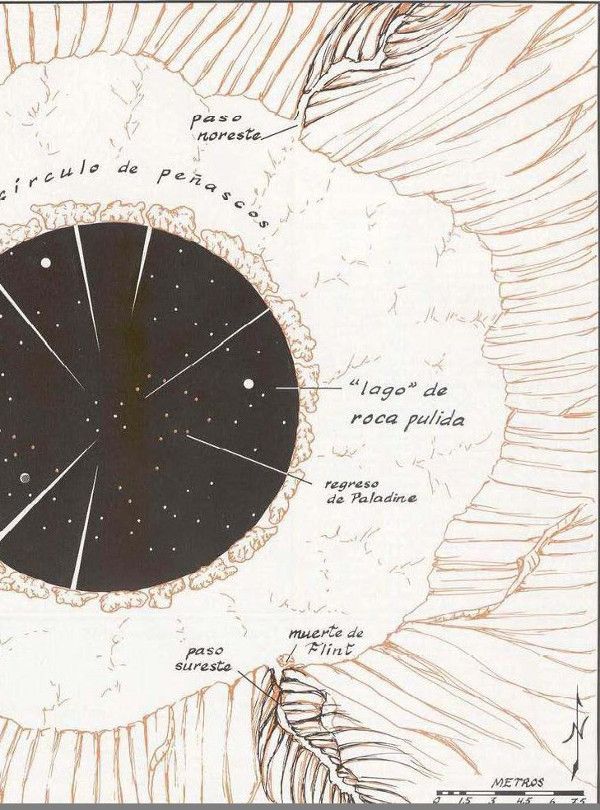 paso
noreste
círculo de peñascos
"lago" de
roca pulida
regreso
de Paladine
muerte de
Flint
paso
sureste
N
METROS
0 1.5 3 4.5 6 7.5